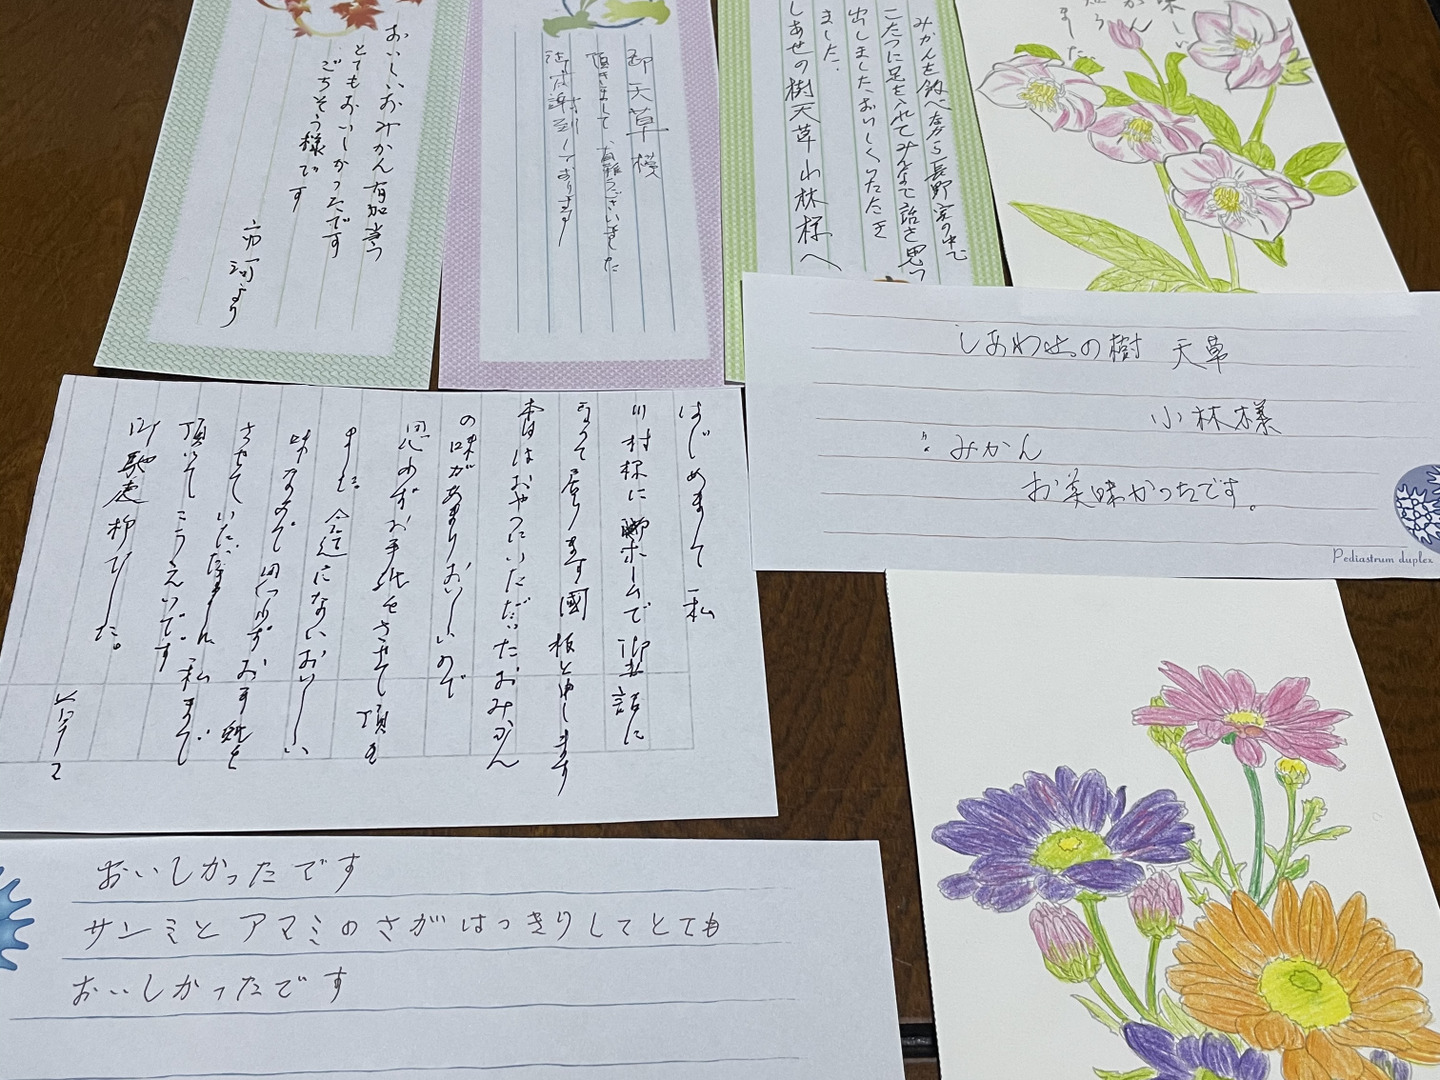 おいしいおみかん有難う
とてもおいしかったです
ごちそう様です
市河より
御天草様
頂きまして、有難うございました
御感謝致しております
みかんを食べながら長野実の中で
こたつに足を入れてみんなで話を思い
出しました、おいしくいただき
ました。
しあせの樹天草小林様へ
しあわせの樹 天草
小林様
みかん
お美味かったです。
Pediastrum duplex
はじめまして 私
川村様にホームで御世話に
なって居ります國板と申します
本日はおやつにいただいたおみかん
の味があまりおいしいので
思わずお手紙をさせて頂き
ました。今迄にないおいしい
味なので思わずお手紙を
させていただきました 私まで
頂いてこうえいです
御馳走様でした。
おいしかったです
サンミとアマミのさがはっきりしてとても
おいしかったです